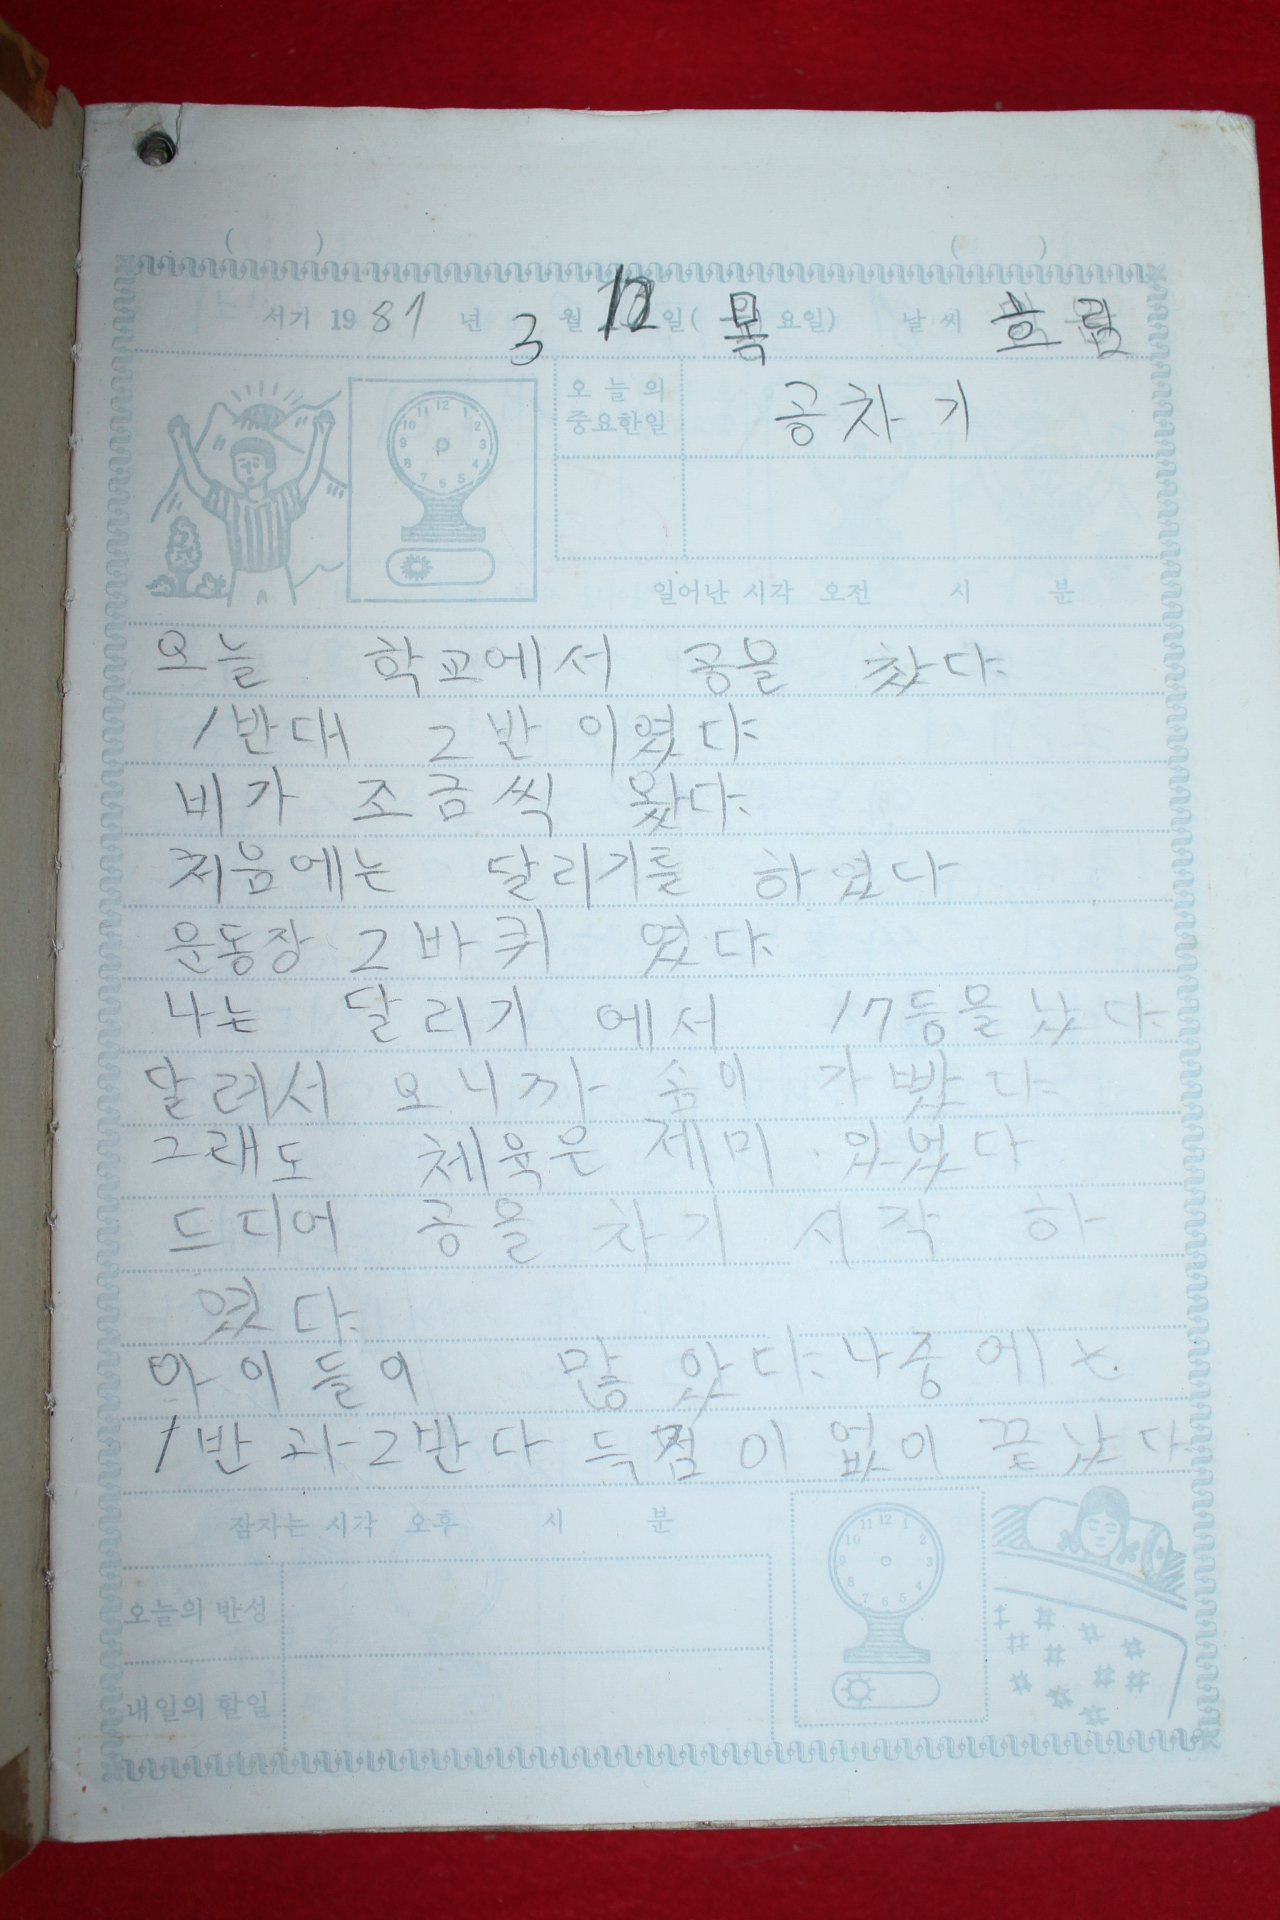 ( ) ( )
서기 1981 년 3 월 12 일( 목 요일) 날씨 흐림
오늘의 중요한일 공차기
일어난 시각 오전 시 분
오늘 학교에서 공을 찼다.
1반대 2반이였다.
비가 조금씩 왔다.
처음에는 달리기를 하였다
운동장 2바퀴 였다.
나는 달리기에서 17등을 났다.
달려서 오니까 숨이 가빴다.
그래도 체육은 제미 있었다
드디어 공을 차기 시작 하
였다.
아이들이 많았다. 나중에는
1반과 2반 다 득점이 없이 끝났다
잠자는 시각 오후 시 분
오늘의 반성
내일의 할일